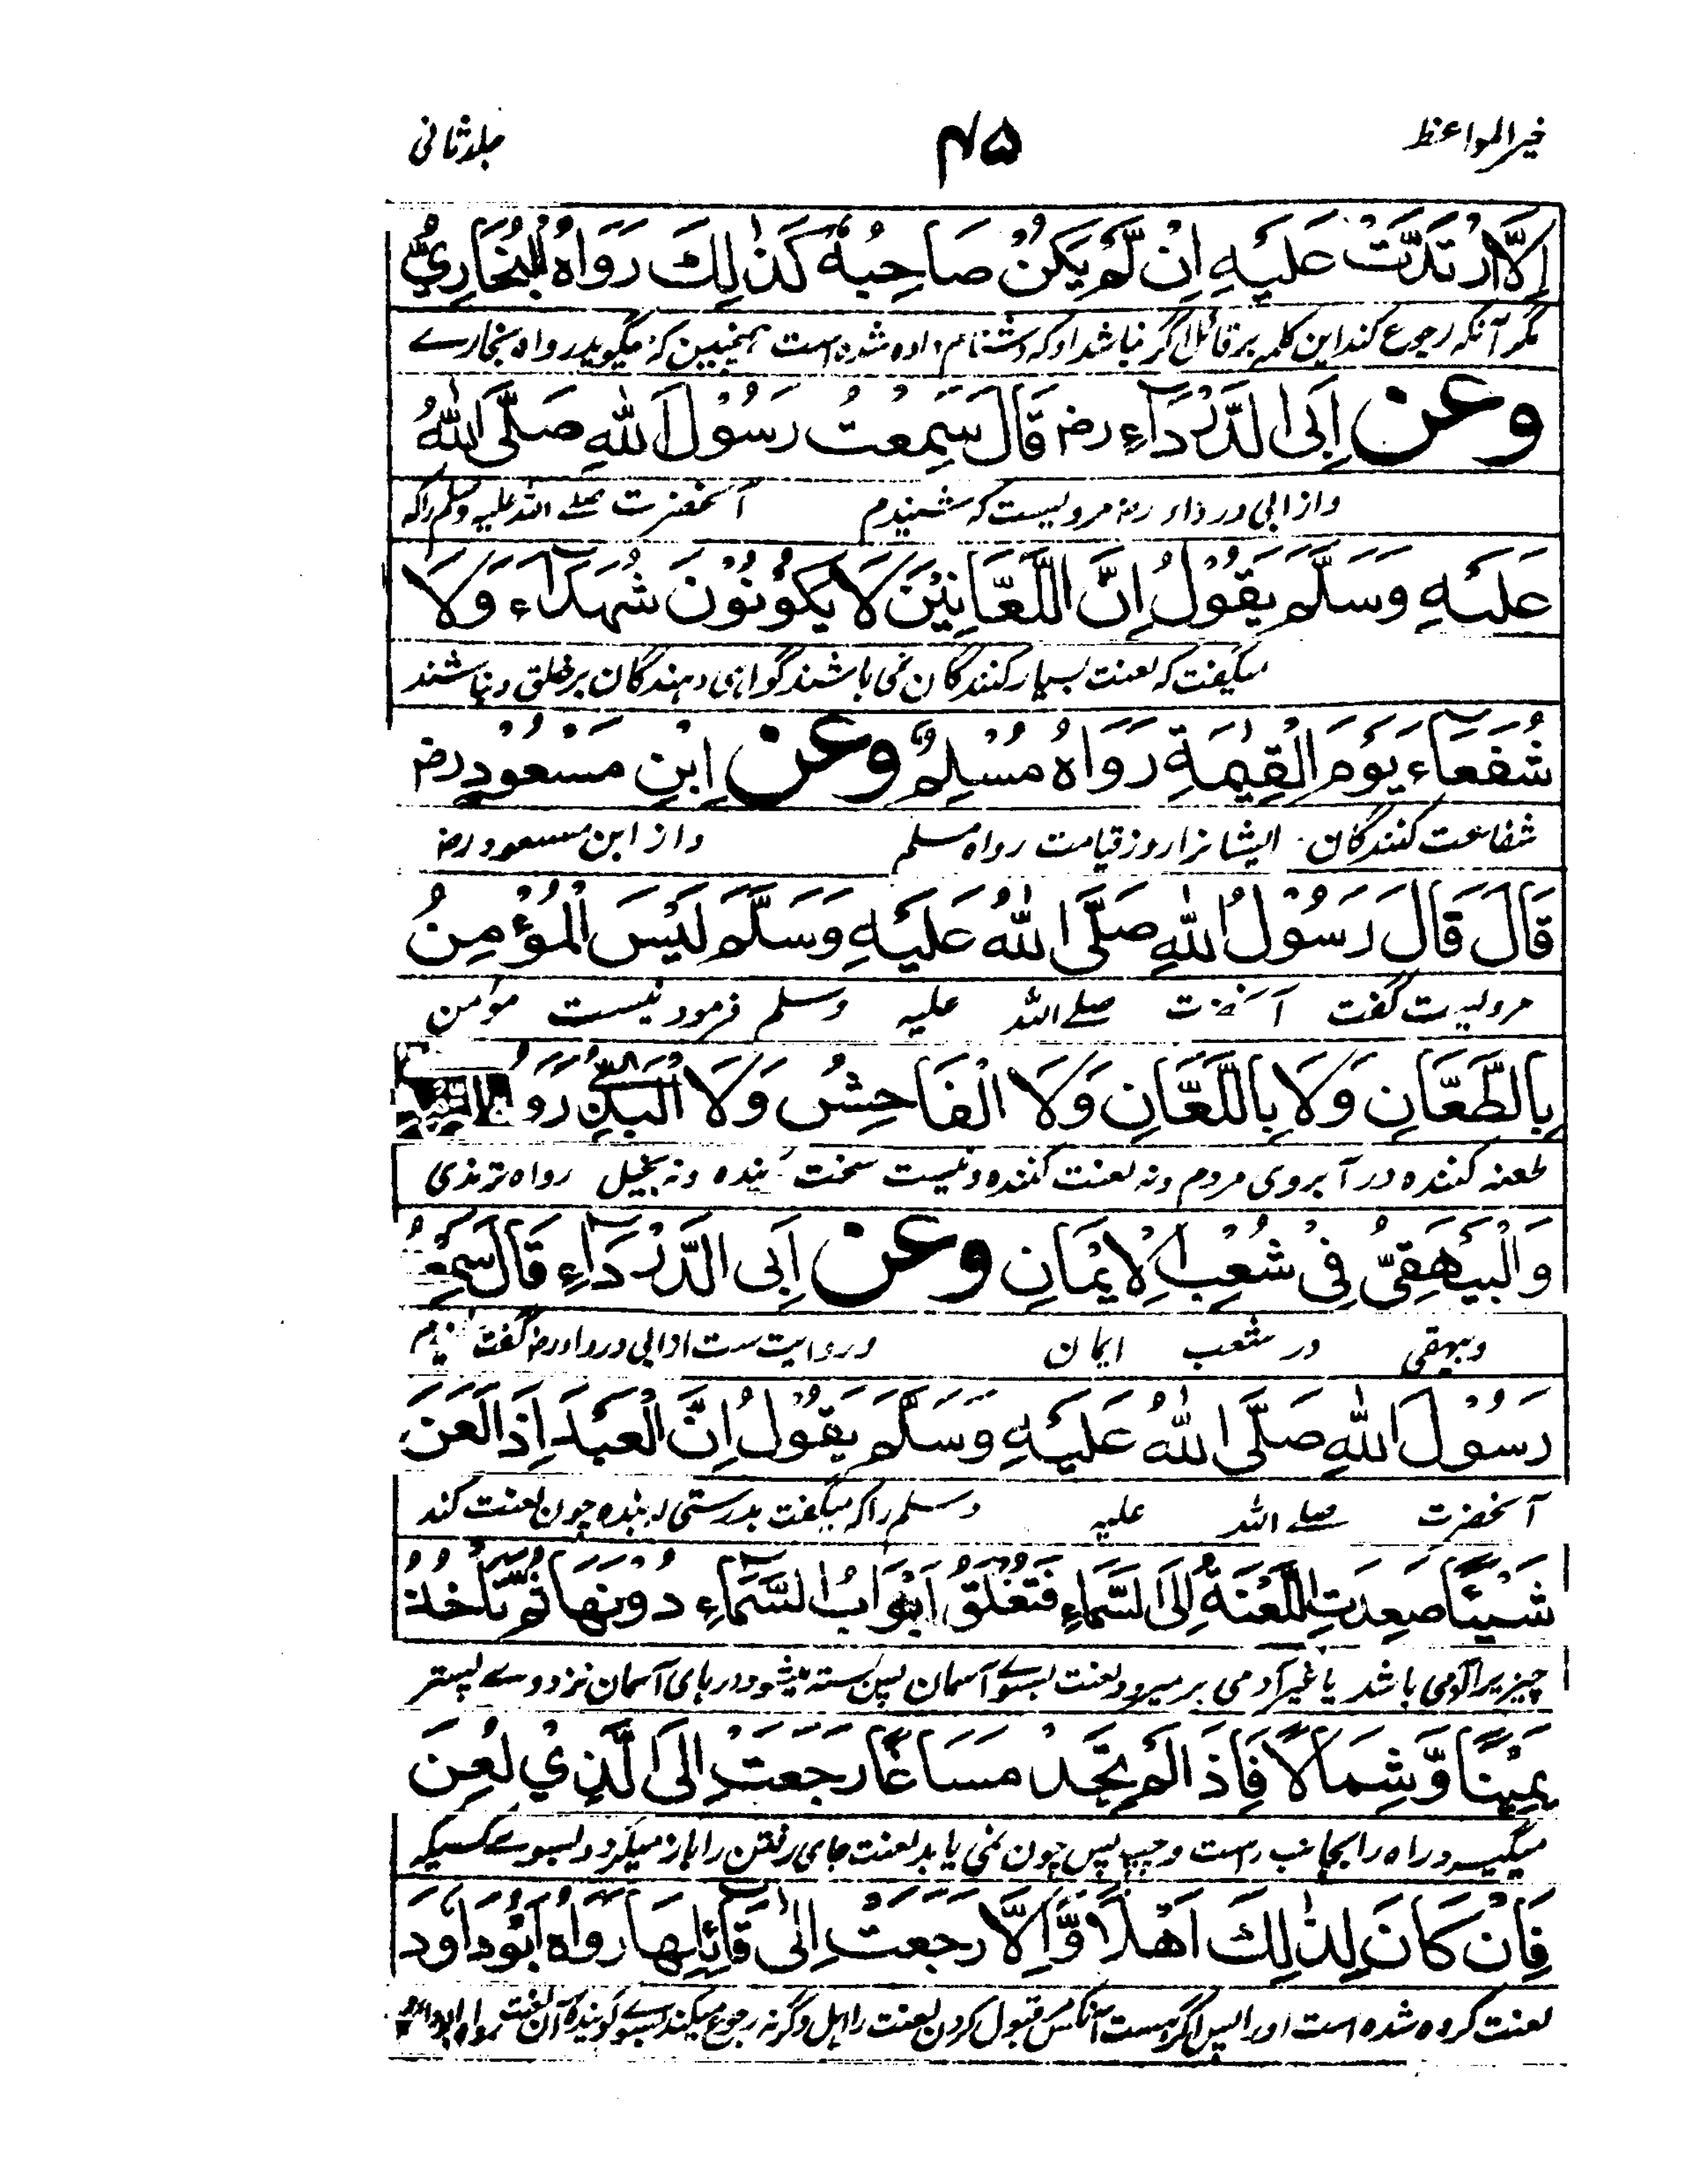 خیر المواعظ
۴۵
جلد ثانی
اِلَّا ارْتَدَّتْ عَلَيْهِ اِنْ لَّمْ يَكُنْ صَاحِبُهٗ كَذٰلِكَ رَوَاهُ الْبُخَارِيُّ
مگر آنکه رجوع کند این کلمه بر قائل اگر نباشد او که دشنام داده شده است همچنین که میگوید رواه بخارے
وعن اَبِی الدَّرْدَآءِ رض قَالَ سَمِعْتُ رَسُوْلَ اللّٰهِ صَلَّى اللّٰهُ
و از ابی درداء رض مرویست که شنیدم آنحضرت صلے الله علیه وسلم را که
عَلَيْهِ وَسَلَّمَ يَقُوْلُ اِنَّ اللَّعَّانِيْنَ لَا يَكُوْنُوْنَ شُهَدَآءَ وَلَا
میگفت که لعنت بسیار کنندگان نمی باشند گواهی دهندگان بر خلق و نباشند
شُفَعَآءَ يَوْمَ الْقِيٰمَةِ رَوَاهُ مُسْلِمٌ وعن اِبْنِ مَسْعُوْدٍ رض
شفاعت کنندگان ایشانرا روز قیامت رواه مسلم و از ابن مسعود رض
قَالَ قَالَ رَسُوْلُ اللّٰهِ صَلَّى اللّٰهُ عَلَيْهِ وَسَلَّمَ لَيْسَ الْمُؤْمِنُ
مرویست گفت آنحضرت صلے الله علیه وسلم فرمود نیست مؤمن
بِالطَّعَّانِ وَلَا بِاللَّعَّانِ وَلَا الْفَاحِشِ وَلَا الْبَذِيِّ رَوَاهُ
طعنه کننده در آبروی مردم و نه لعنت کننده و نیست سخت و نه بخیل رواه ترمذی
وَالْبَيْهَقِيُّ فِيْ شُعَبِ الْاِيْمَانِ وعن اَبِی الدَّرْدَآءِ قَالَ سَمِعْتُ
و بیهقی در شعب ایمان و روایت ست از ابی درداء رض گفت شنیدم
رَسُوْلَ اللّٰهِ صَلَّى اللّٰهُ عَلَيْهِ وَسَلَّمَ يَقُوْلُ اِنَّ الْعَبْدَ اِذَا لَعَنَ
آنحضرت صلے الله علیه وسلم را که میگفت بدرستی که بنده چون لعنت کند
شَيْئًا صَعِدَتِ اللَّعْنَةُ اِلَى السَّمَآءِ فَتُغْلَقُ اَبْوَابُ السَّمَآءِ دُوْنَهَا ثُمَّ تَأْخُذُ
چیزیرا آدمی باشد یا غیر آدمی بر میرود لعنت بسوے آسمان پس بسته میشود درهای آسمان نزد وے پستر
يَمِيْنًا وَّشِمَالًا فَاِذَا لَمْ تَجِدْ مَسَاغًا رَجَعَتْ اِلَى الَّذِيْ لُعِنَ
میگیرد راه را بجانب راست و چپ پس چون نمی یابد لعنت جای رفتن را باز میگردد بسوے کسیکه
فَاِنْ كَانَ لِذٰلِكَ اَهْلًا وَّاِلَّا رَجَعَتْ اِلٰى قَآئِلِهَا رَوَاهُ اَبُوْ دَاوٗدَ
لعنت کرده شده است او را پس اگر هست آنکس قبول کردن لعنت را اهل و گرنه رجوع میکند بسوے گوینده آن لعنت رواه ابو داؤد